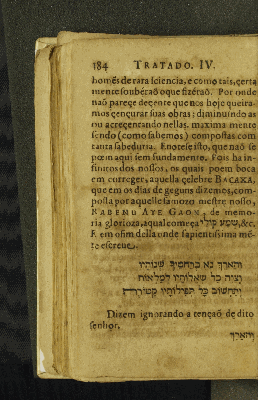 184 TRATADO. IV.
homẽs de rara sciencia, e como tais, certa
mente soubéraõ oque fizéraõ. Por onde
naõ pareçe deçente que nos hoje queira-
mos çençurar suas obras: diminuindo as
ou acreçentando nellas. maxima mente
sendo (como sabemos) compostas com
tanta sabeduria. Enotese isto, que naõ se
poem aqui sem fundamento. Pois ha in-
finitos dos nossos, os quais poem boca
em correger, aquella çelebre BACAXA,
que em os dias de geguns dizemos, com-
posta por aquelle famozo mestre nosso,
RABENU AYE GAON, de memo-
ria glorioza, aqual começa שמע קולי &c.
E em o fim della onde sapientissima mẽ-
te escreue,
והארך נא בתחמיך שנותיו
תצוה כל שאלותיו למלאות
ותחשוב כל תפילותיו כקטורת
Dizem ignorando a tençaõ de dito
senhor,
והארך